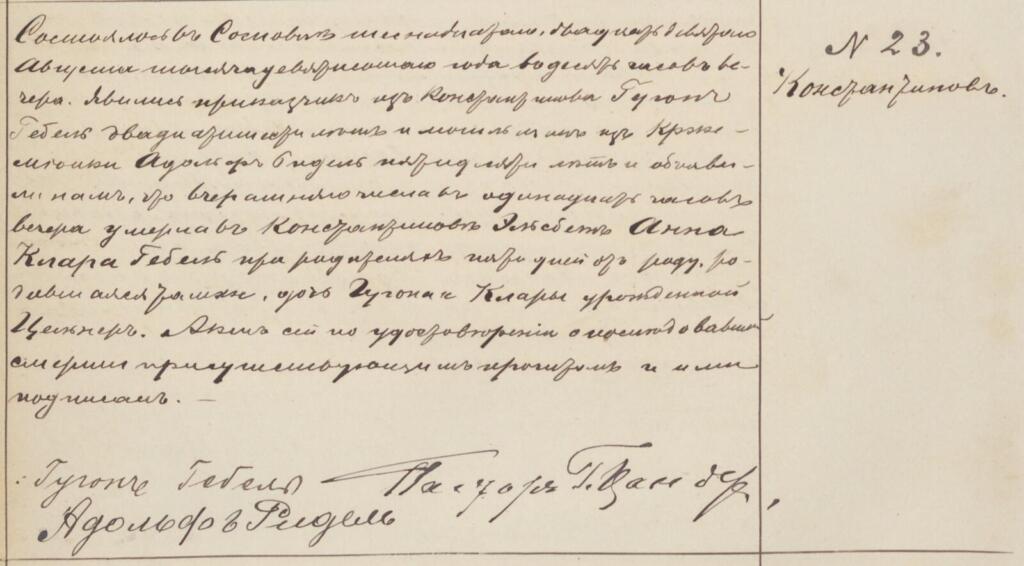 Состоялось въ Сосновицѣ шестнадцатаго, двадцать девятаго
Августа тысяча девятисотаго года въ десять часовъ ве-
чера. Явились прикащикъ изъ Константинова Гугонъ
Гебель двадцати шести лѣтъ и могильщикъ изъ
Адольфъ Ридель пятидесяти лѣтъ и объяви-
ли намъ, что вчерашняго числа въ одинадцать часовъ
вечера умерла въ Константиновѣ Эльсбетъ Анна
Клара Гебель при родителяхъ пяти дней отъ роду, ро-
дившаяся тамже, дочь Гугона и Клары урожденной
Цельнеръ. Актъ сей по удостовѣреніи о послѣдовавшей
смерти присутствующимъ прочитанъ и ими
подписанъ. —
Гугонъ Гебель Пасторъ Г. Цандеръ
Адольфъ Ридель
N 23.
Константиновъ.